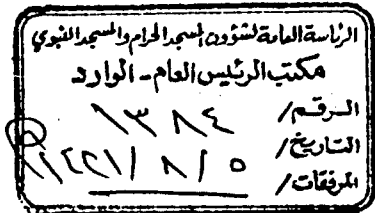 الرئاسة العامة لشؤون المسجد الحرام والمسجد النبوي
مكتب الرئيس العام - الوارد
الرقم / ١٣٨٤
التاريخ / ٥ / ٨ /
المرفقات /